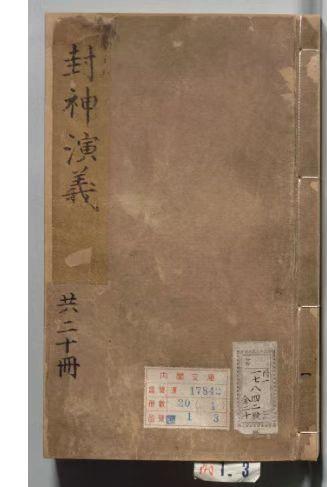 封神演義
共二十冊
内閣文庫
17842
冊數 20
1 3
一七八四二號
1.3